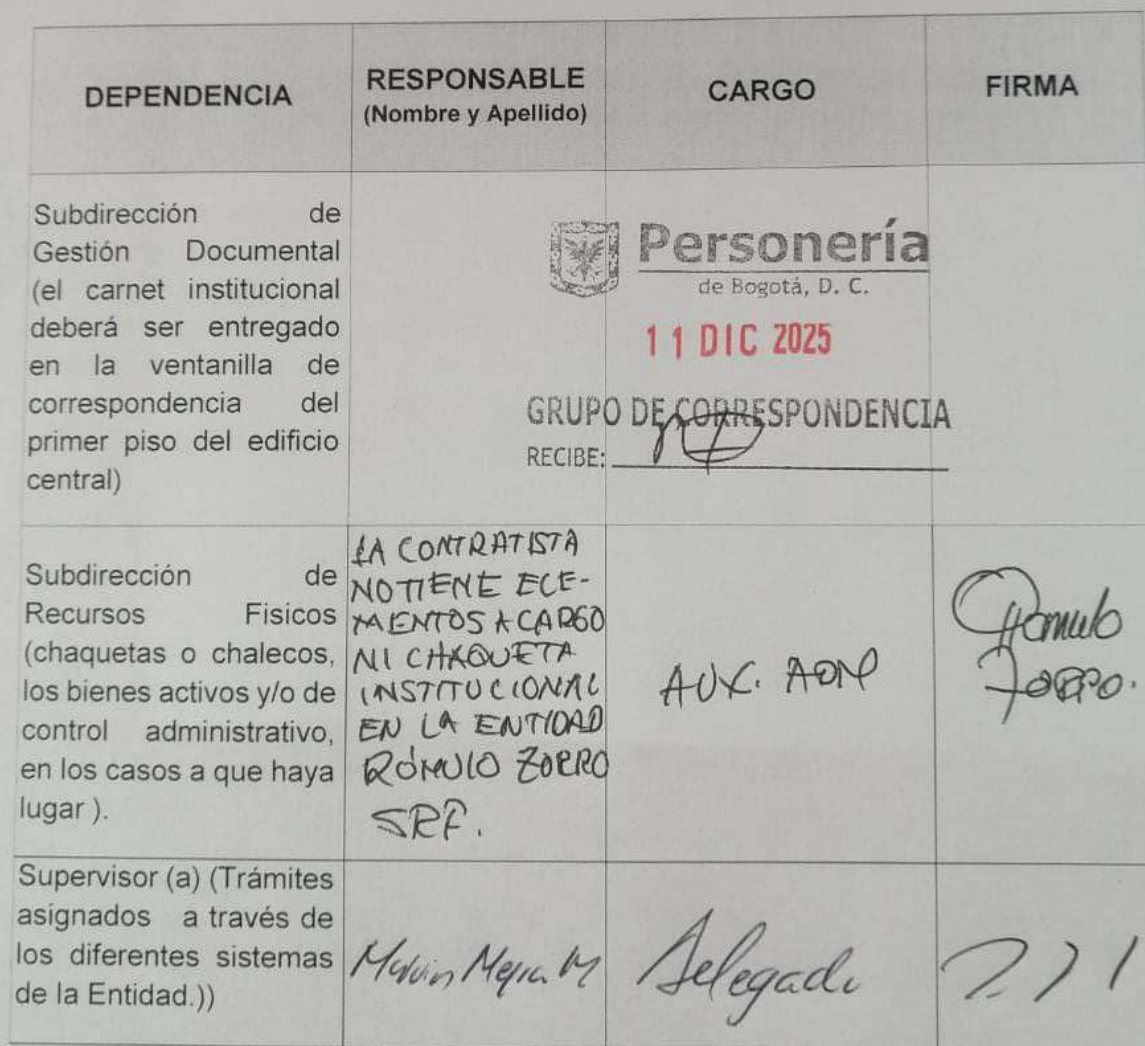 DEPENDENCIA
RESPONSABLE
(Nombre y Apellido)
CARGO
FIRMA
Subdirección de
Gestión Documental
(el carnet institucional
deberá ser entregado
en la ventanilla de
correspondencia del
primer piso del edificio
central)
Personería
de Bogotá, D. C.
11 DIC 2025
GRUPO DE CORRESPONDENCIA
RECIBE:
Subdirección de
Recursos Fisicos
(chaquetas o chalecos,
los bienes activos y/o de
control administrativo,
en los casos a que haya
lugar ).
LA CONTRATISTA
NO TIENE ELE-
MENTOS A CARGO
NI CHAQUETA
INSTITUCIONAL
EN LA ENTIDAD
RÓMULO ZORRO
SRF.
AUX. ADM
Romulo
Zorro.
Supervisor (a) (Trámites
asignados a través de
los diferentes sistemas
de la Entidad.))
Mejia M
Delegado